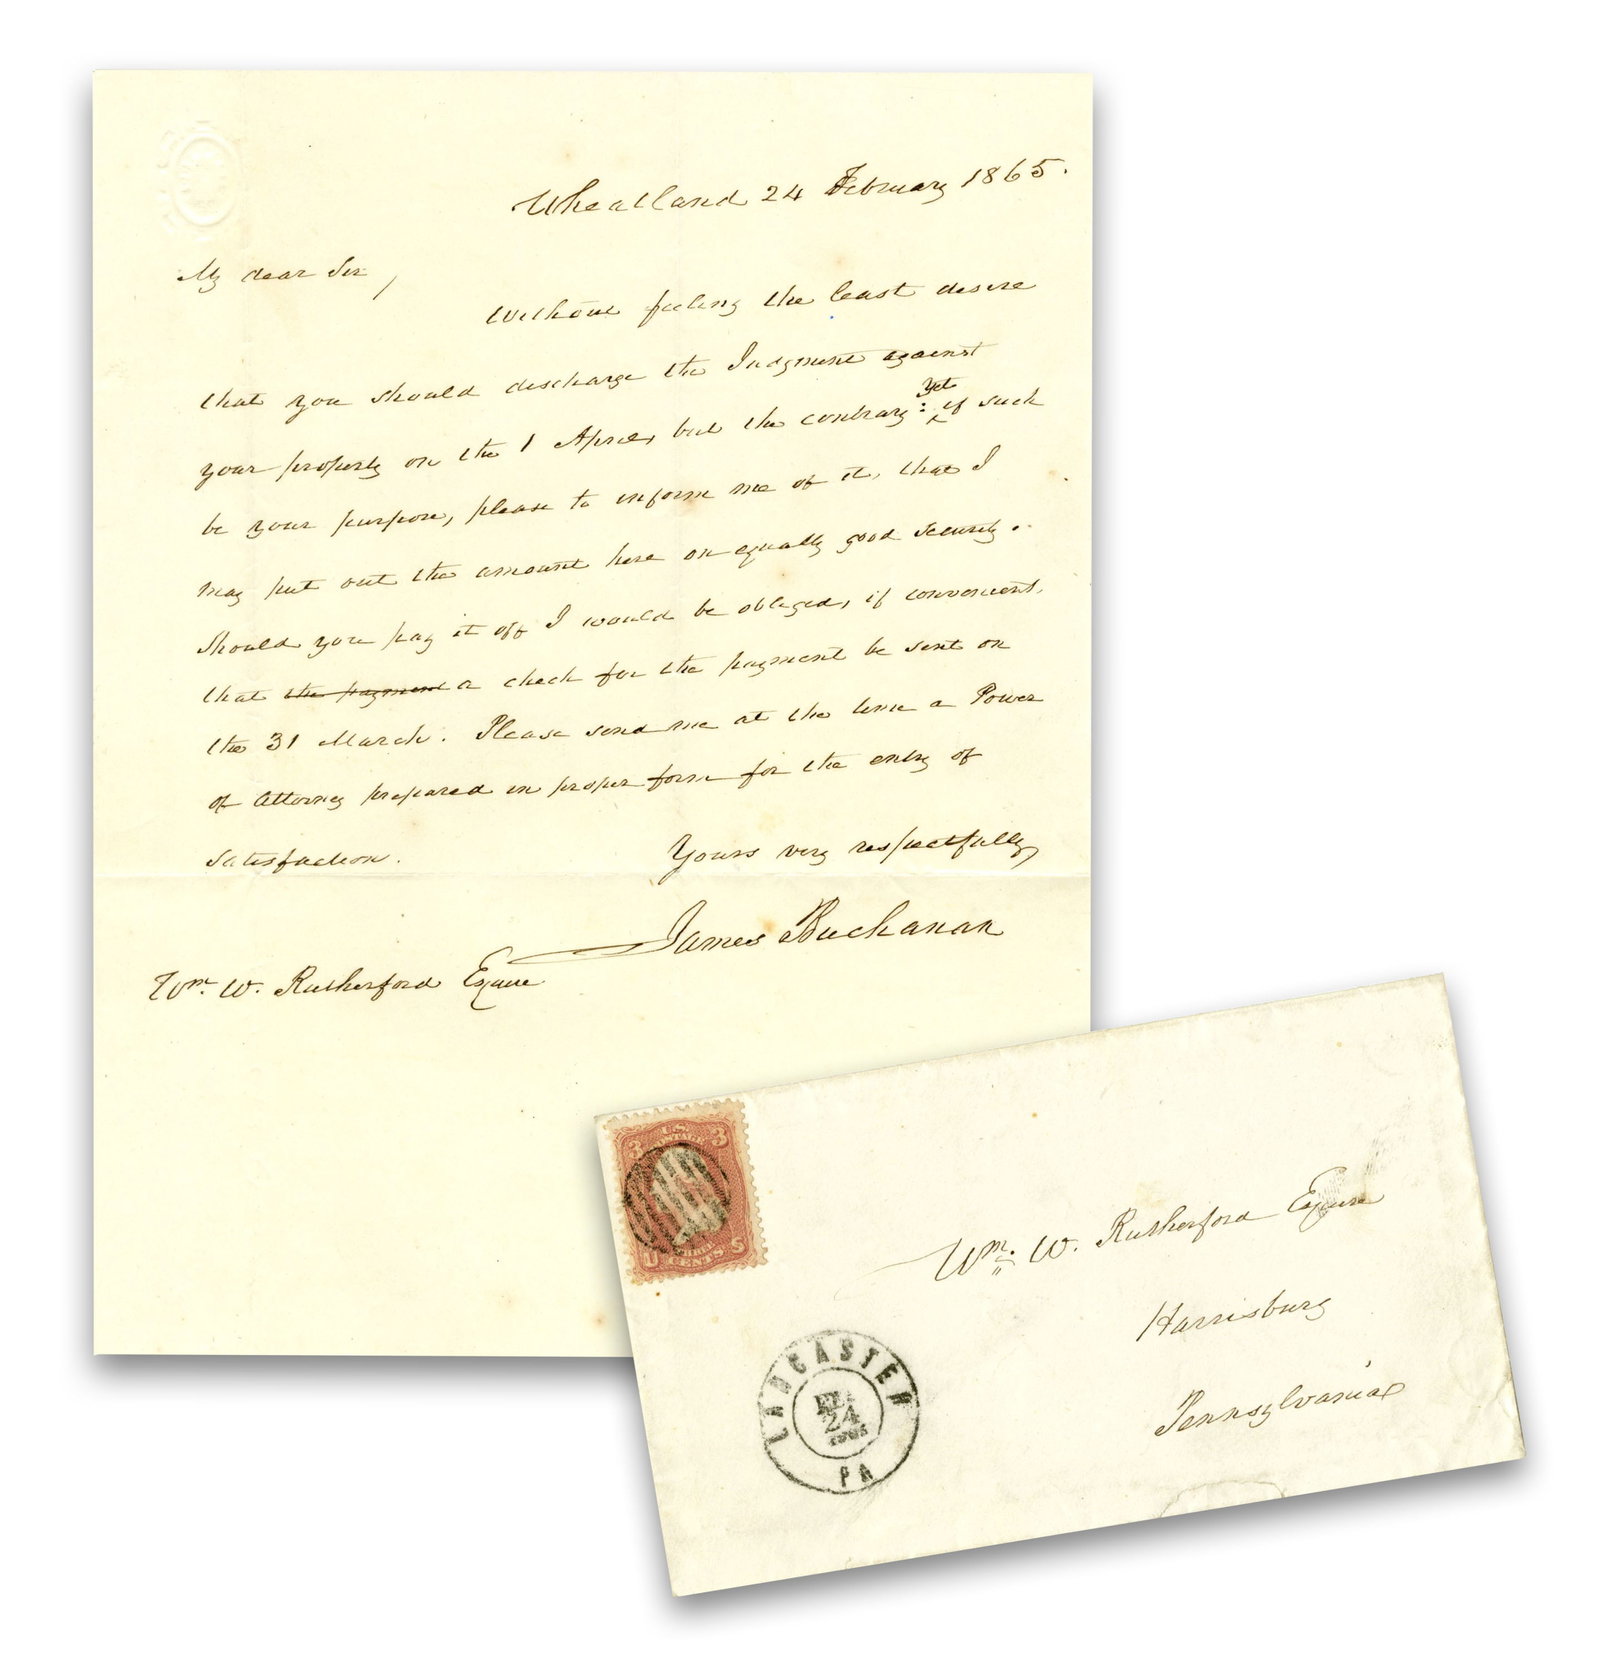 Wheatland 24 February 1865.
My dear Sir,
Without feeling the least desire
that you should discharge the Judgment against
your property on the 1 April, but the contrary: yet if such
be your purpose, please to inform me of it, that I
may put out the amount here on equally good security.
Should you pay it off I would be obliged, if convenient,
that the payment a check for the payment be sent on
the 31 March. Please send me at the time a Power
of Attorney prepared in proper form for the entry of
satisfaction.
Yours very respectfully
James Buchanan
Wm. W. Rutherford Esquire
3 U.S. 3
U THREE S
CENTS
Wm. W. Rutherford Esquire
Harrisburg
Pennsylvania
LANCASTER
24
PA